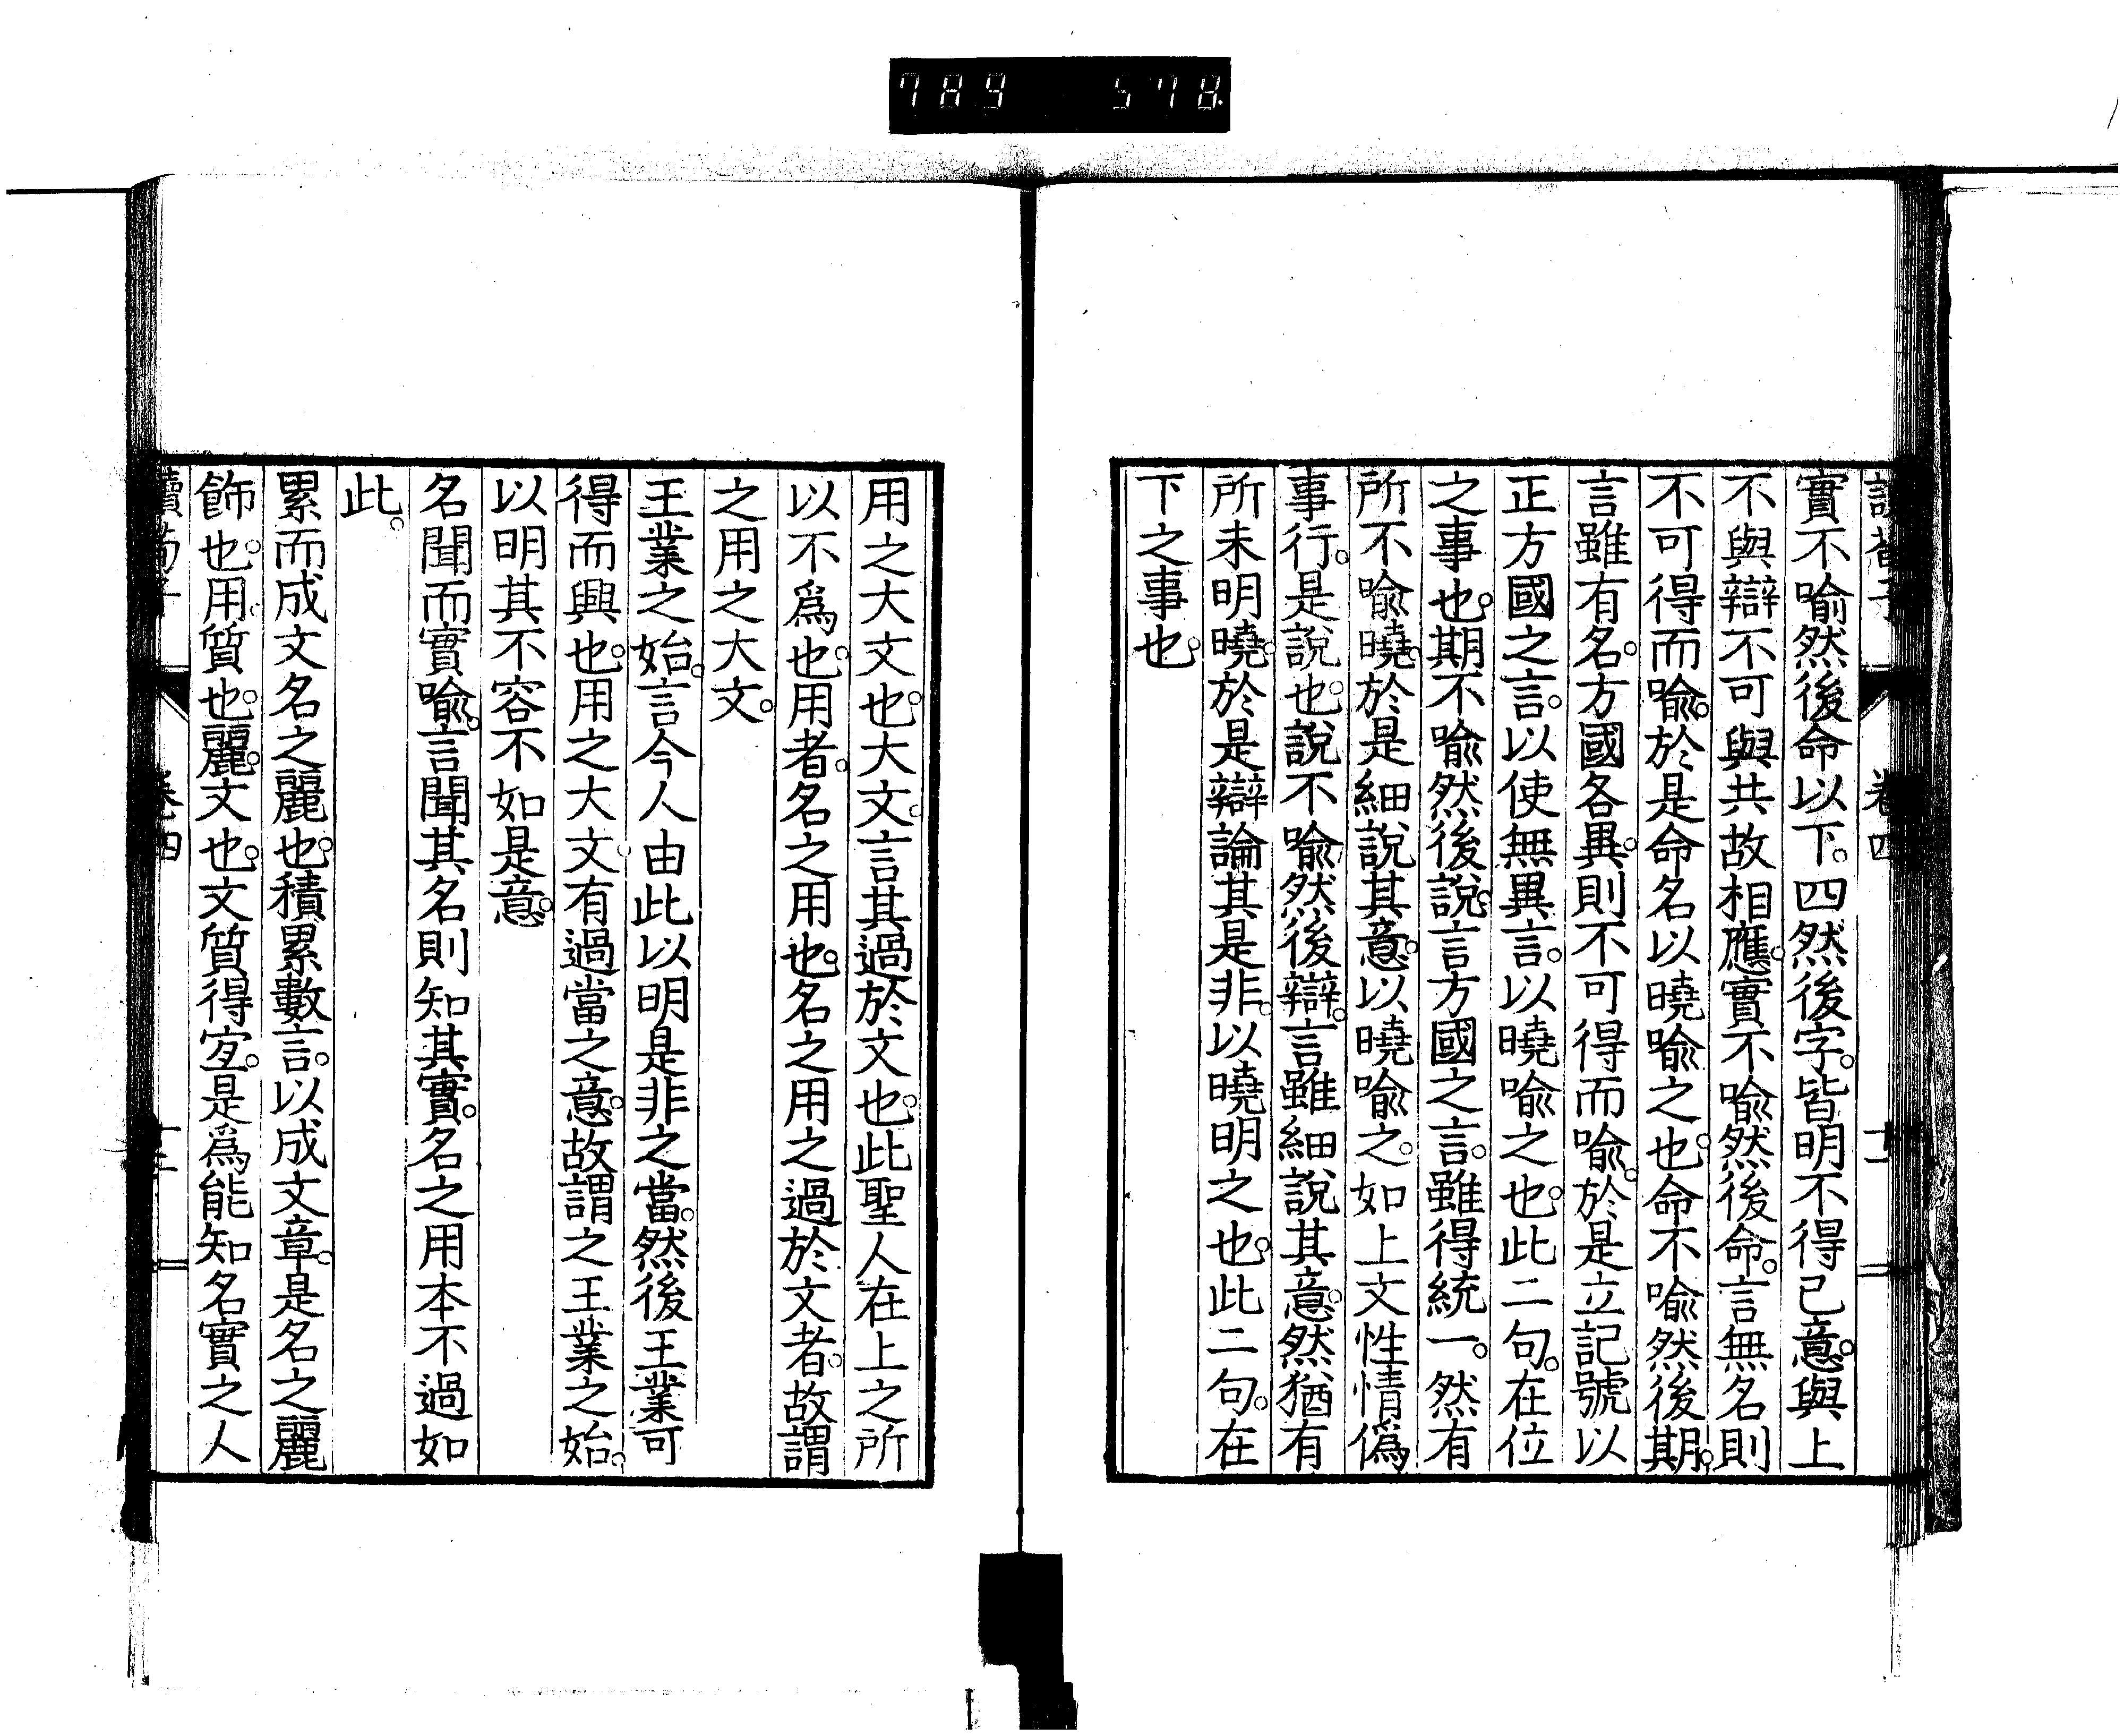 789 578
讀荀子 卷四 十二
實不喻然後命以下。四然後字。皆明不得已意。與上
不與辯不可與共故相應。實不喻然後命。言無名則
不可得而喻。於是命名以曉喻之也。命不喻然後期。
言雖有名。方國各異。則不可得而喻。於是立記號以
正方國之言。以使無異言。以曉喻之也。此二句。在位
之事也。期不喻然後說。言方國之言。雖得統一。然有
所不喻曉。於是細說其意。以曉喻之。如上文性情僞
事行。是說也。說不喻然後辯。言雖細說其意。然猶有
所未明曉。於是辯論其是非。以曉明之也。此二句。在
下之事也。
用之大文也。大文。言其過於文也。此聖人在上之所
以不爲也。用者。名之用也。名之用之過於文者。故謂
之用之大文。
王業之始。言今人由此以明是非之當。然後王業可
得而興也。用之大文。有過當之意。故謂之王業之始。
以明其不容不如是意。
名聞而實喻。言聞其名則知其實。名之用本不過如
此。
累而成文名之麗也。積累數言。以成文章。是名之麗
飾也。用。質也。麗。文也。文質得宜。是爲能知名實之人
讀荀子 卷四